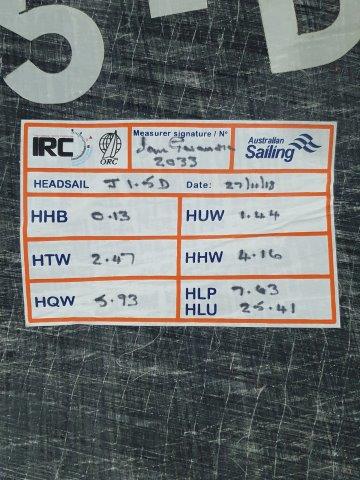 IRC ORC Measurer signature / N° Australian Sailing
2033
HEADSAIL J 1.5D Date: 27/11/18
HHB 0.13 HUW 1.44
HTW 2.47 HHW 4.16
HQW 5.93 HLP 7.63
HLU 25.41